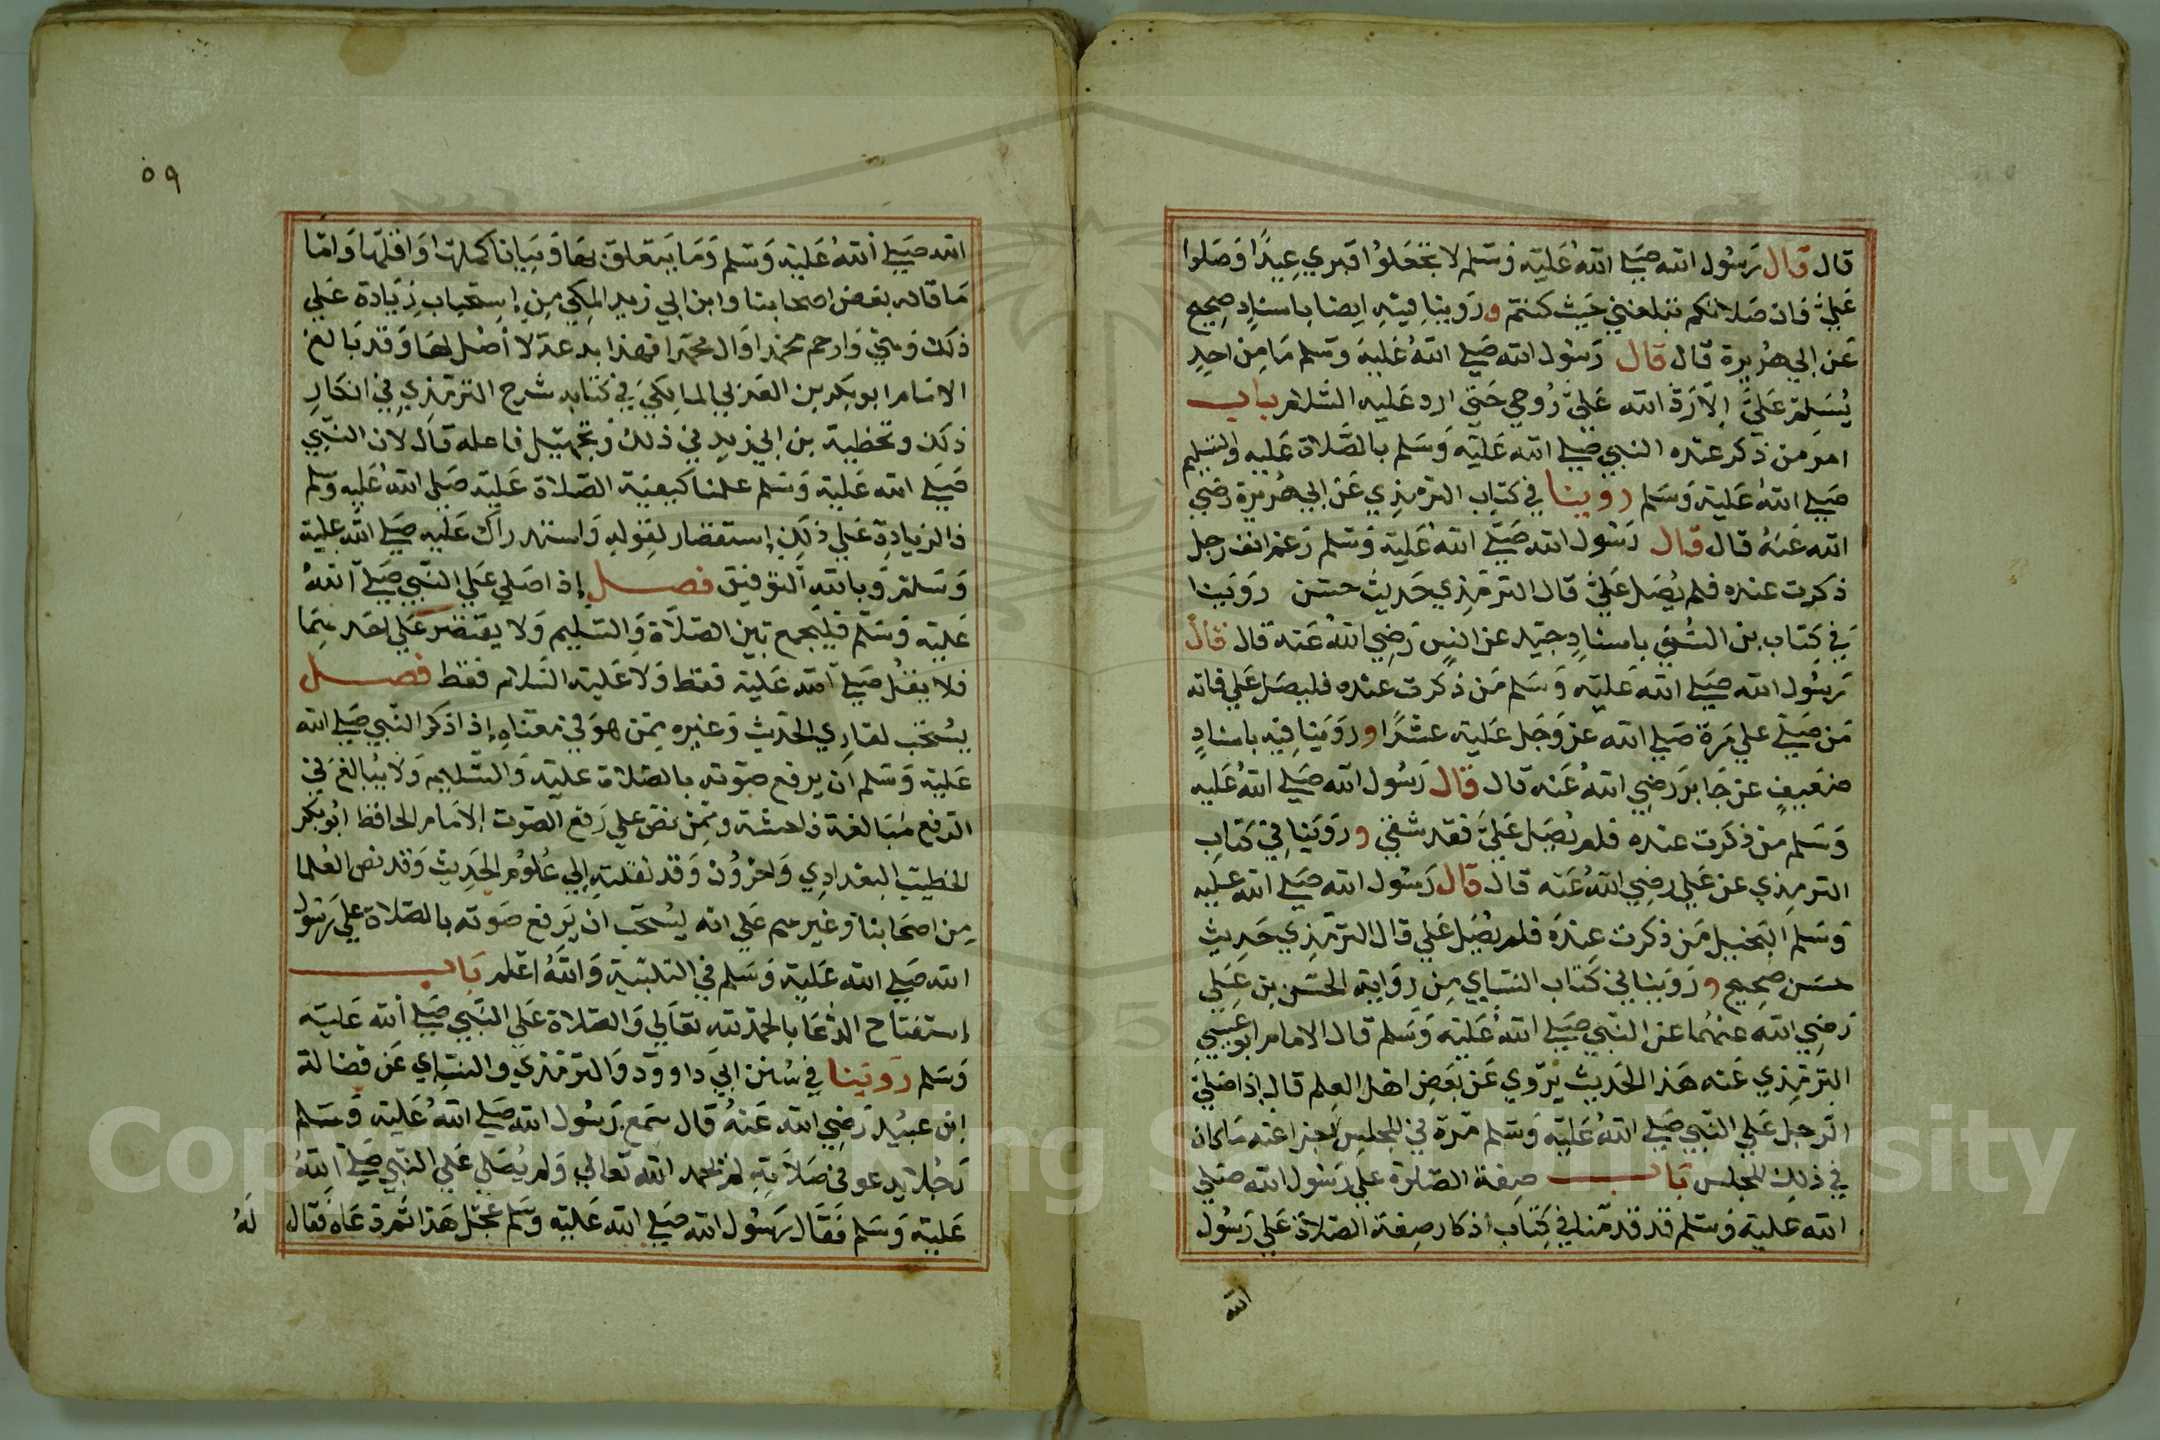 قال قال رسول الله صلي الله عليه وسلم لا تجعلوا قبري عيدا وصلوا
علي فان صلاتكم تبلغني حيث كنتم و روينا فيه ايضا باسناد صحيح
عن ابي هريرة قال قال رسول الله صلي الله عليه وسلم ما من احد
يسلم علي الا رد الله علي روحي حتي ارد عليه السلام باب
امر من ذكر عنده النبي صلي الله عليه وسلم بالصلاة عليه والتسليم
صلي الله عليه وسلم روينا في كتاب الترمذي عن ابي هريرة رضي
الله عنه قال قال رسول الله صلي الله عليه وسلم رغم انف رجل
ذكرت عنده فلم يصل علي قال الترمذي حديث حسن روينا
في كتاب بن السني باسناد جيد عن انس رضي الله عنه قال قال
رسول الله صلي الله عليه وسلم من ذكرت عنده فليصل علي فانه
من صلي علي مرة صلي الله عز وجل عليه عشرا و روينا فيه باسناد
ضعيف عن جابر رضي الله عنه قال قال رسول الله صلي الله عليه
وسلم من ذكرت عنده فلم يصل علي فقد شقي و روينا في كتاب
الترمذي عن علي رضي الله عنه قال قال رسول الله صلي الله عليه
وسلم البخيل من ذكرت عنده فلم يصل علي قال الترمذي حديث
حسن صحيح و روينا في كتاب النسايي من رواية الحسن بن علي
رضي الله عنهما عن النبي صلي الله عليه وسلم قال الامام ابو عيسي
الترمذي عنه هذا الحديث يروي عن بعض اهل العلم قال اذا صلي
الرجل علي النبي صلي الله عليه وسلم مرة في المجلس اجزا عنه ما كان
في ذلك المجلس باب صفة الصلوة علي رسول الله صلي
الله عليه وسلم قد قدمنا في كتاب اذكار صفة الصلاة علي رسول
الله
٥٩
الله صلي الله عليه وسلم وما يتعلق بها وبيان اكملها واقلها واما
ما قاله بعض اصحابنا وابن ابي زيد المالكي من استحباب زيادة علي
ذلك وهي وارحم محمدا وال محمد فهذا بدعة لا اصل لها وقد بالغ
الامام ابو بكر بن العربي المالكي في كتابه شرح الترمذي في انكار
ذلك وتخطية بن ابي زيد في ذلك وتجهيل فاعله قال لان النبي
صلي الله عليه وسلم علمنا كيفية الصلاة عليه صلي الله عليه وسلم
فالزيادة علي ذلك استقصار لقوله واستدراك عليه صلي الله عليه
وسلم وبالله التوفيق فصل اذا صلي علي النبي صلي الله
عليه وسلم فليجمع بين الصلاة والتسليم ولا يقتصر علي احدهما
فلا يقل صلي الله عليه فقط ولا عليه السلام فقط فصل
يستحب لقاري الحديث وغيره ممن هو في معناه اذا ذكر النبي صلي الله
عليه وسلم ان يرفع صوته بالصلاة عليه والتسليم ولا يبالغ في
الرفع مبالغة فاحشة وممن نص علي رفع الصوت الامام الحافظ ابو بكر
الخطيب البغدادي واخرون وقد نقلته الي علوم الحديث وقد نص العلما
من اصحابنا وغيرهم علي انه يستحب ان يرفع صوته بالصلاة علي رسول
الله صلي الله عليه وسلم في التلبية والله اعلم باب
استفتاح الدعا بالحمد لله تعالي والصلاة علي النبي صلي الله عليه
وسلم روينا في سنن ابي داوود والترمذي والنسايي عن فضالة
ابن عبيد رضي الله عنه قال سمع رسول الله صلي الله عليه وسلم
رجلا يدعو في صلاته لم يحمد الله تعالي ولم يصلي علي النبي صلي الله
عليه وسلم فقال رسول الله صلي الله عليه وسلم عجل هذا ثم دعاه فقال
له
Copyright © King Saud University